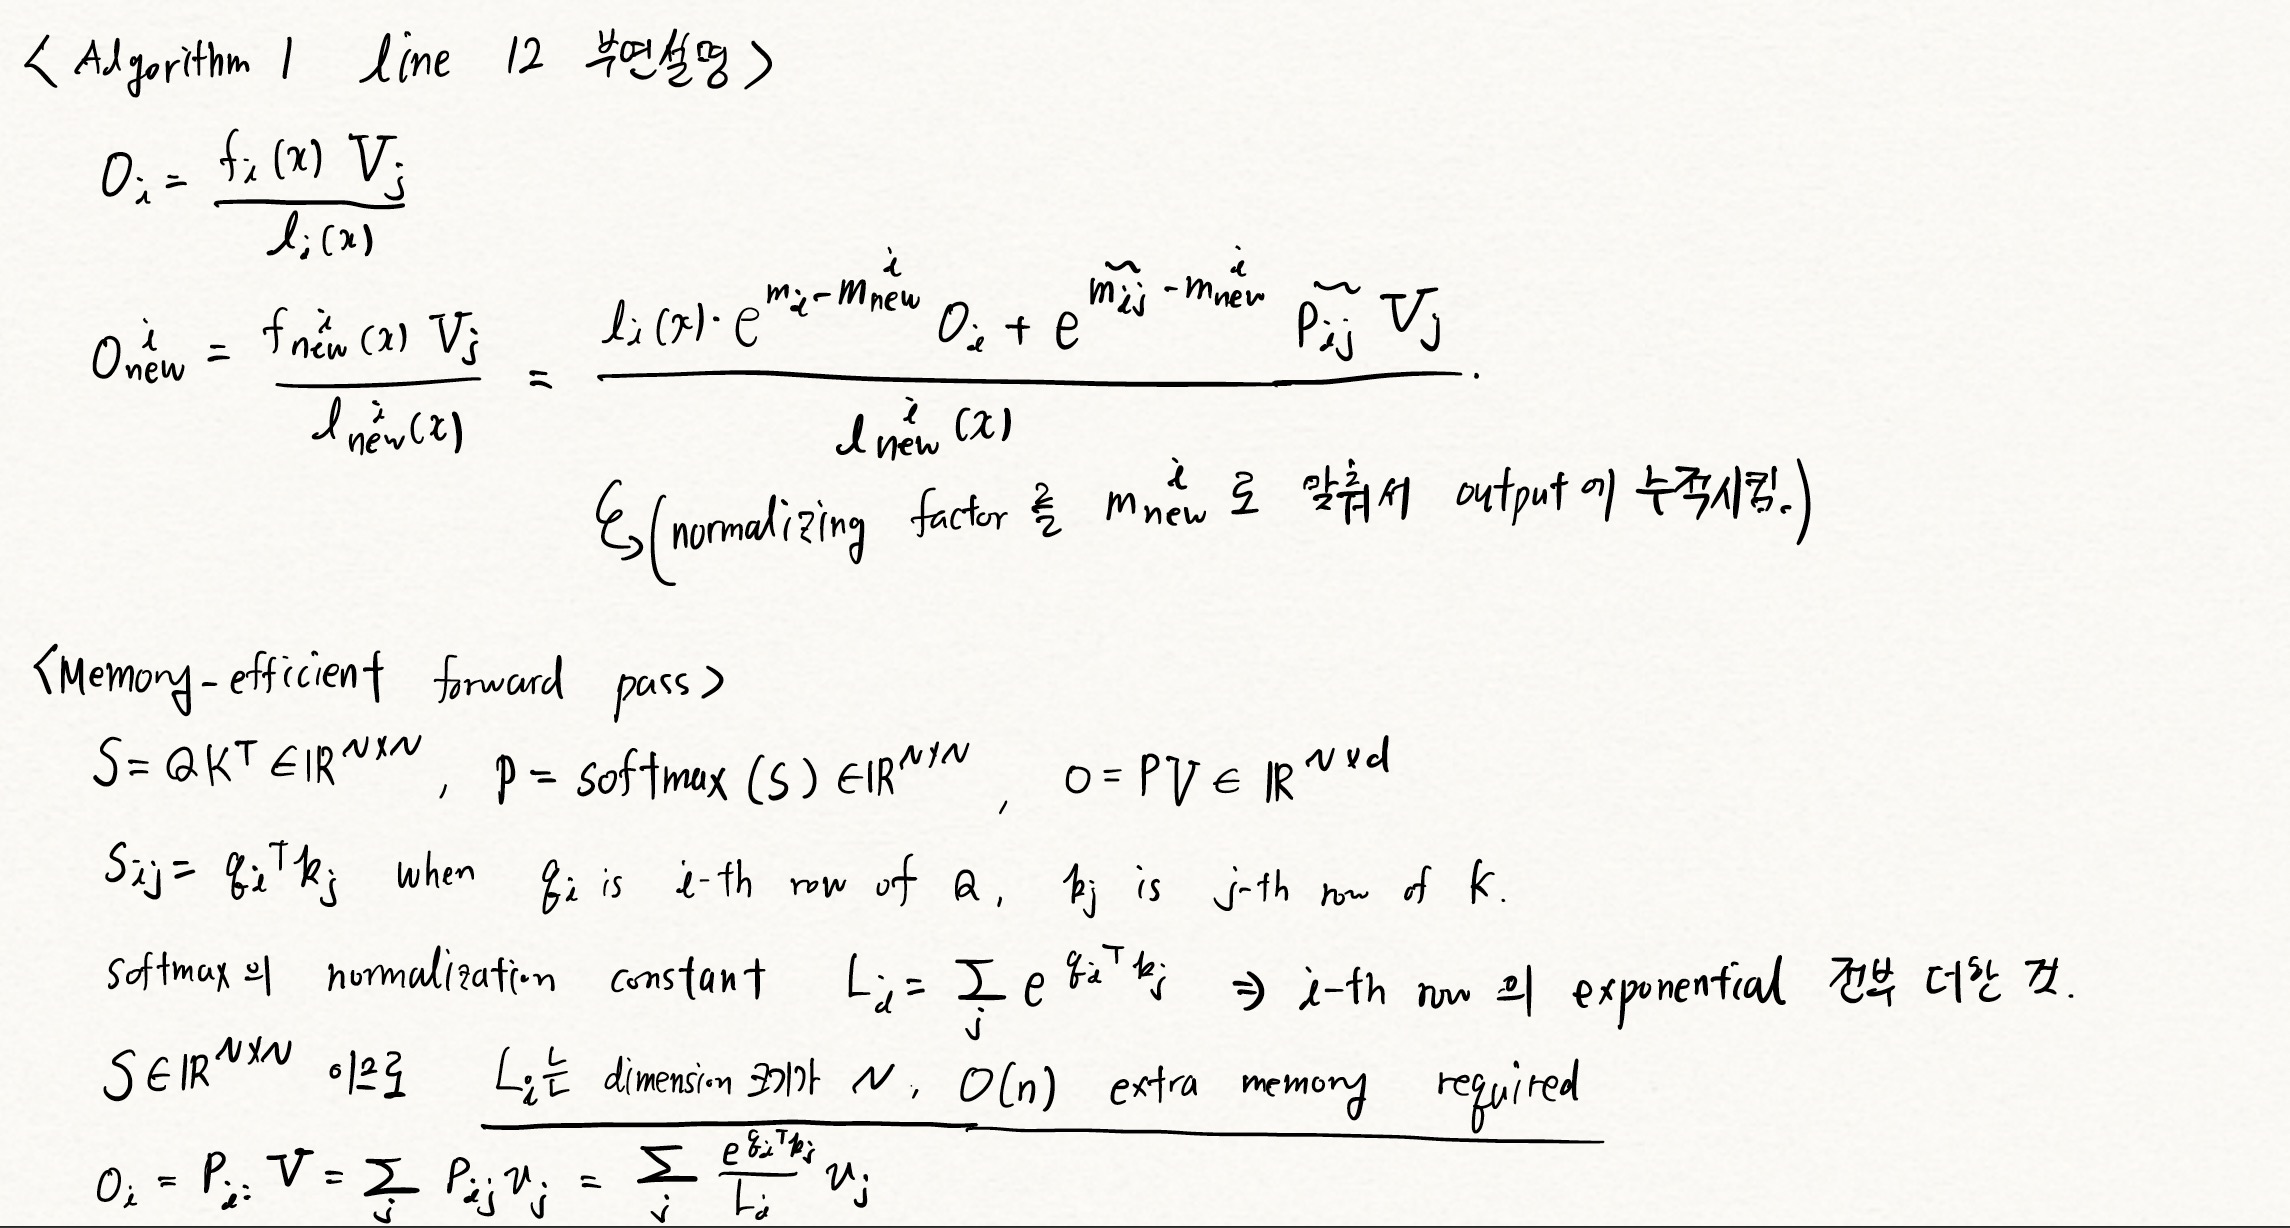 < Algorithm 1 line 12 부연설명 >
O_i = f_i(x) V_j / l_i(x)
O_new^i = f_new^i(x) V_j / l_new^i(x) = (l_i(x)·e^(m_i - m_new^i) O_i + e^(m̃_ij - m_new^i) P̃_ij V_j) / l_new^i(x) .
(normalizing factor를 m_new^i로 맞춰서 output에 누적시킴.)
<Memory-efficient forward pass>
S = QK^T ∈ ℝ^(N×N), P = softmax(S) ∈ ℝ^(N×N), O = PV ∈ ℝ^(N×d)
S_ij = q_i^T k_j when q_i is i-th row of Q, k_j is j-th row of K.
softmax의 normalization constant L_i = Σ_j e^(q_i^T k_j) ⇒ i-th row의 exponential 전부 더한 것.
S ∈ ℝ^(N×N) 이므로 L_i는 dimension 크기가 N, O(n) extra memory required
O_i = P_i: V = Σ_j P_ij v_j = Σ_j (e^(q_i^T k_j) / L_i) v_j